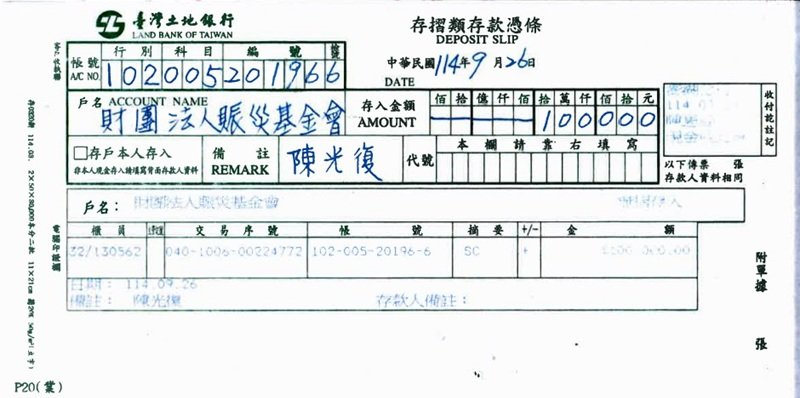 臺灣土地銀行
LAND BANK OF TAIWAN
存摺類存款憑條
DEPOSIT SLIP
中華民國114年9月26日
DATE
行別 科目 編號 檢號
帳號
A/C NO.
102005201966
戶名 ACCOUNT NAME
財團法人賑災基金會
存入金額
AMOUNT
佰拾億仟佰拾萬仟佰拾元
100000
收付訖註記
□存戶本人存入
非本人現金存入請填寫背面存款人資料
備註
REMARK
陳光復
代號
本欄請靠右填寫
以下傳票 張
存款人資料相同
戶名:
財團法人賑災基金會
櫃員 交易序號 帳號 摘要 +/- 金額
32/130562 040-1006-00224772 102-005-20196-6 SC +
日期: 114.09.26
備註: 陳光復 存款人備註:
電腦印錄欄
附單據 張
P20(業)